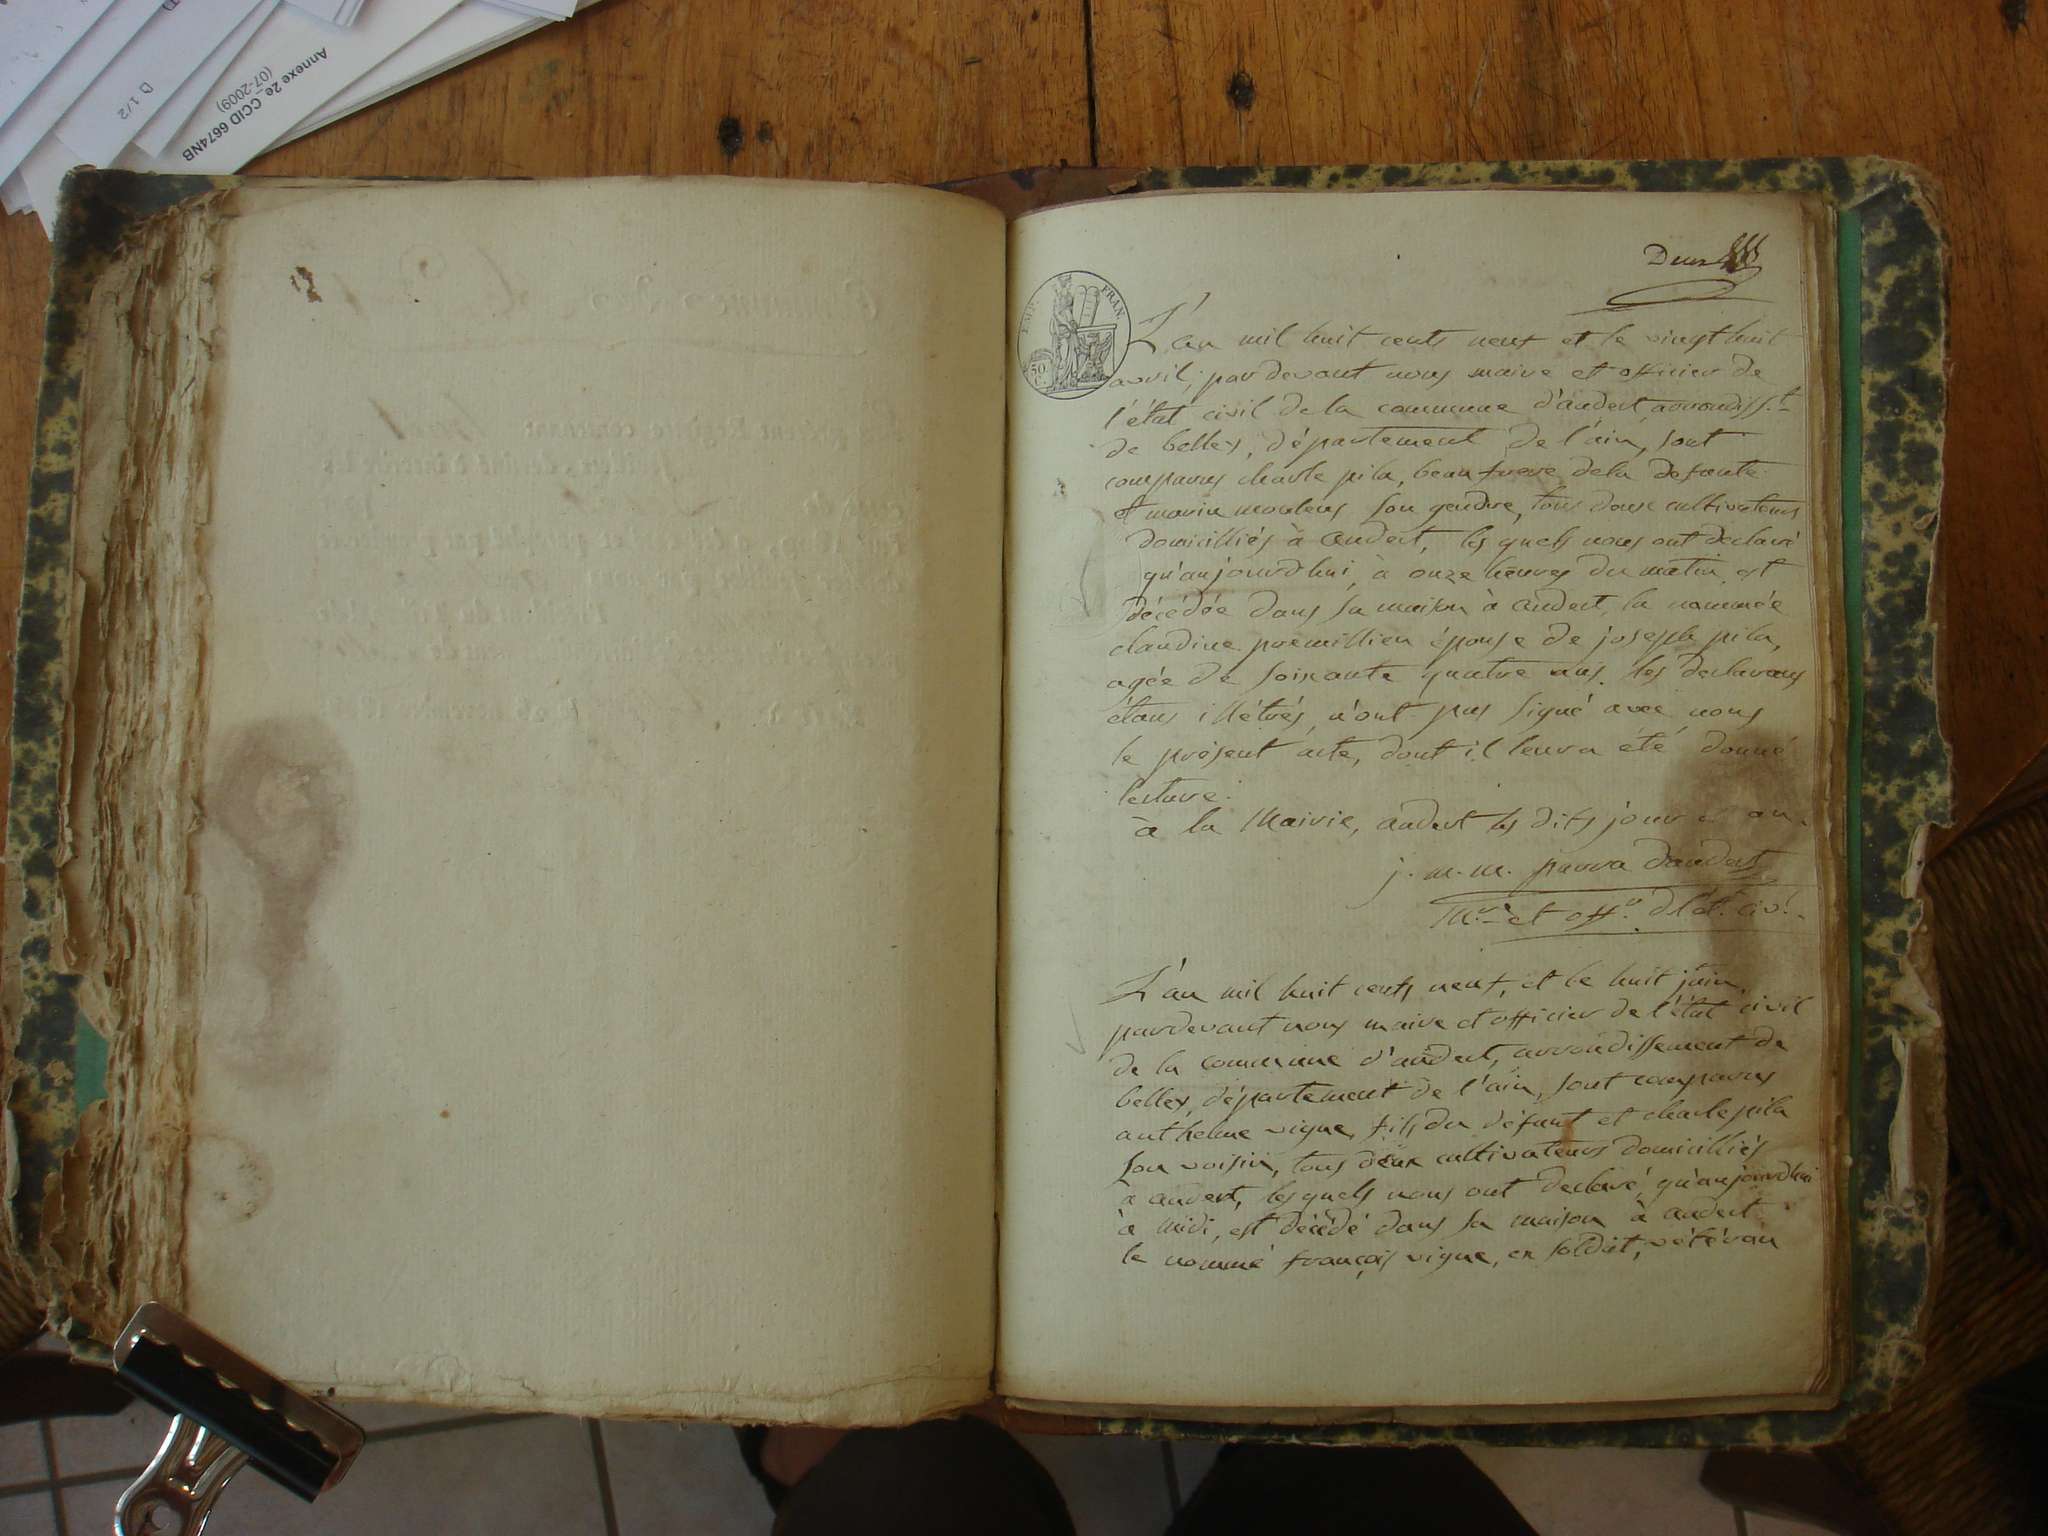 Annexe 2e_CCID 6674NB
(07-2009)
D 1/2
Deux
EMP. FRAN.
50
C.
L'an mil huit cents neuf et le vingt huit
avril, pardevant nous maire et officier de
l'état civil de la commune d'andert arrondiss.t
de belley, département de l'ain, sont
comparus charle pila, beau frere dela defunte
et marin son gendre, tous deux cultivateurs
domicilliés à andert, les quels nous ont declaré
qu'aujourdhui, à onze heures du matin, est
décédée dans sa maison à andert, la nommée
claudine premillieu épouse de joseph pila,
agée de soixante quatre ans. les declarans
étans illétrés, n'ont pas signé avec nous
le présent acte, dont il leur a été donné
lecture.
à la Mairie, andert les dits jour et an.
j. m. m. parra dandert
M.re et off.r d l'ét. civ.l
L'an mil huit cents neuf, et le huit juin,
pardevant nous maire et officier de l'état civil
de la commune d'andert, arrondissement de
belley, département de l'ain, sont comparus
anthelme vigne, fils du défunt et charle pila
son voisin, tous deux cultivateurs domicilliés
à andert, les quels nous ont declaré, qu'aujourdhui
à midi, est décédé dans sa maison à andert
le nommé françois vigne, ex soldat, vétéran